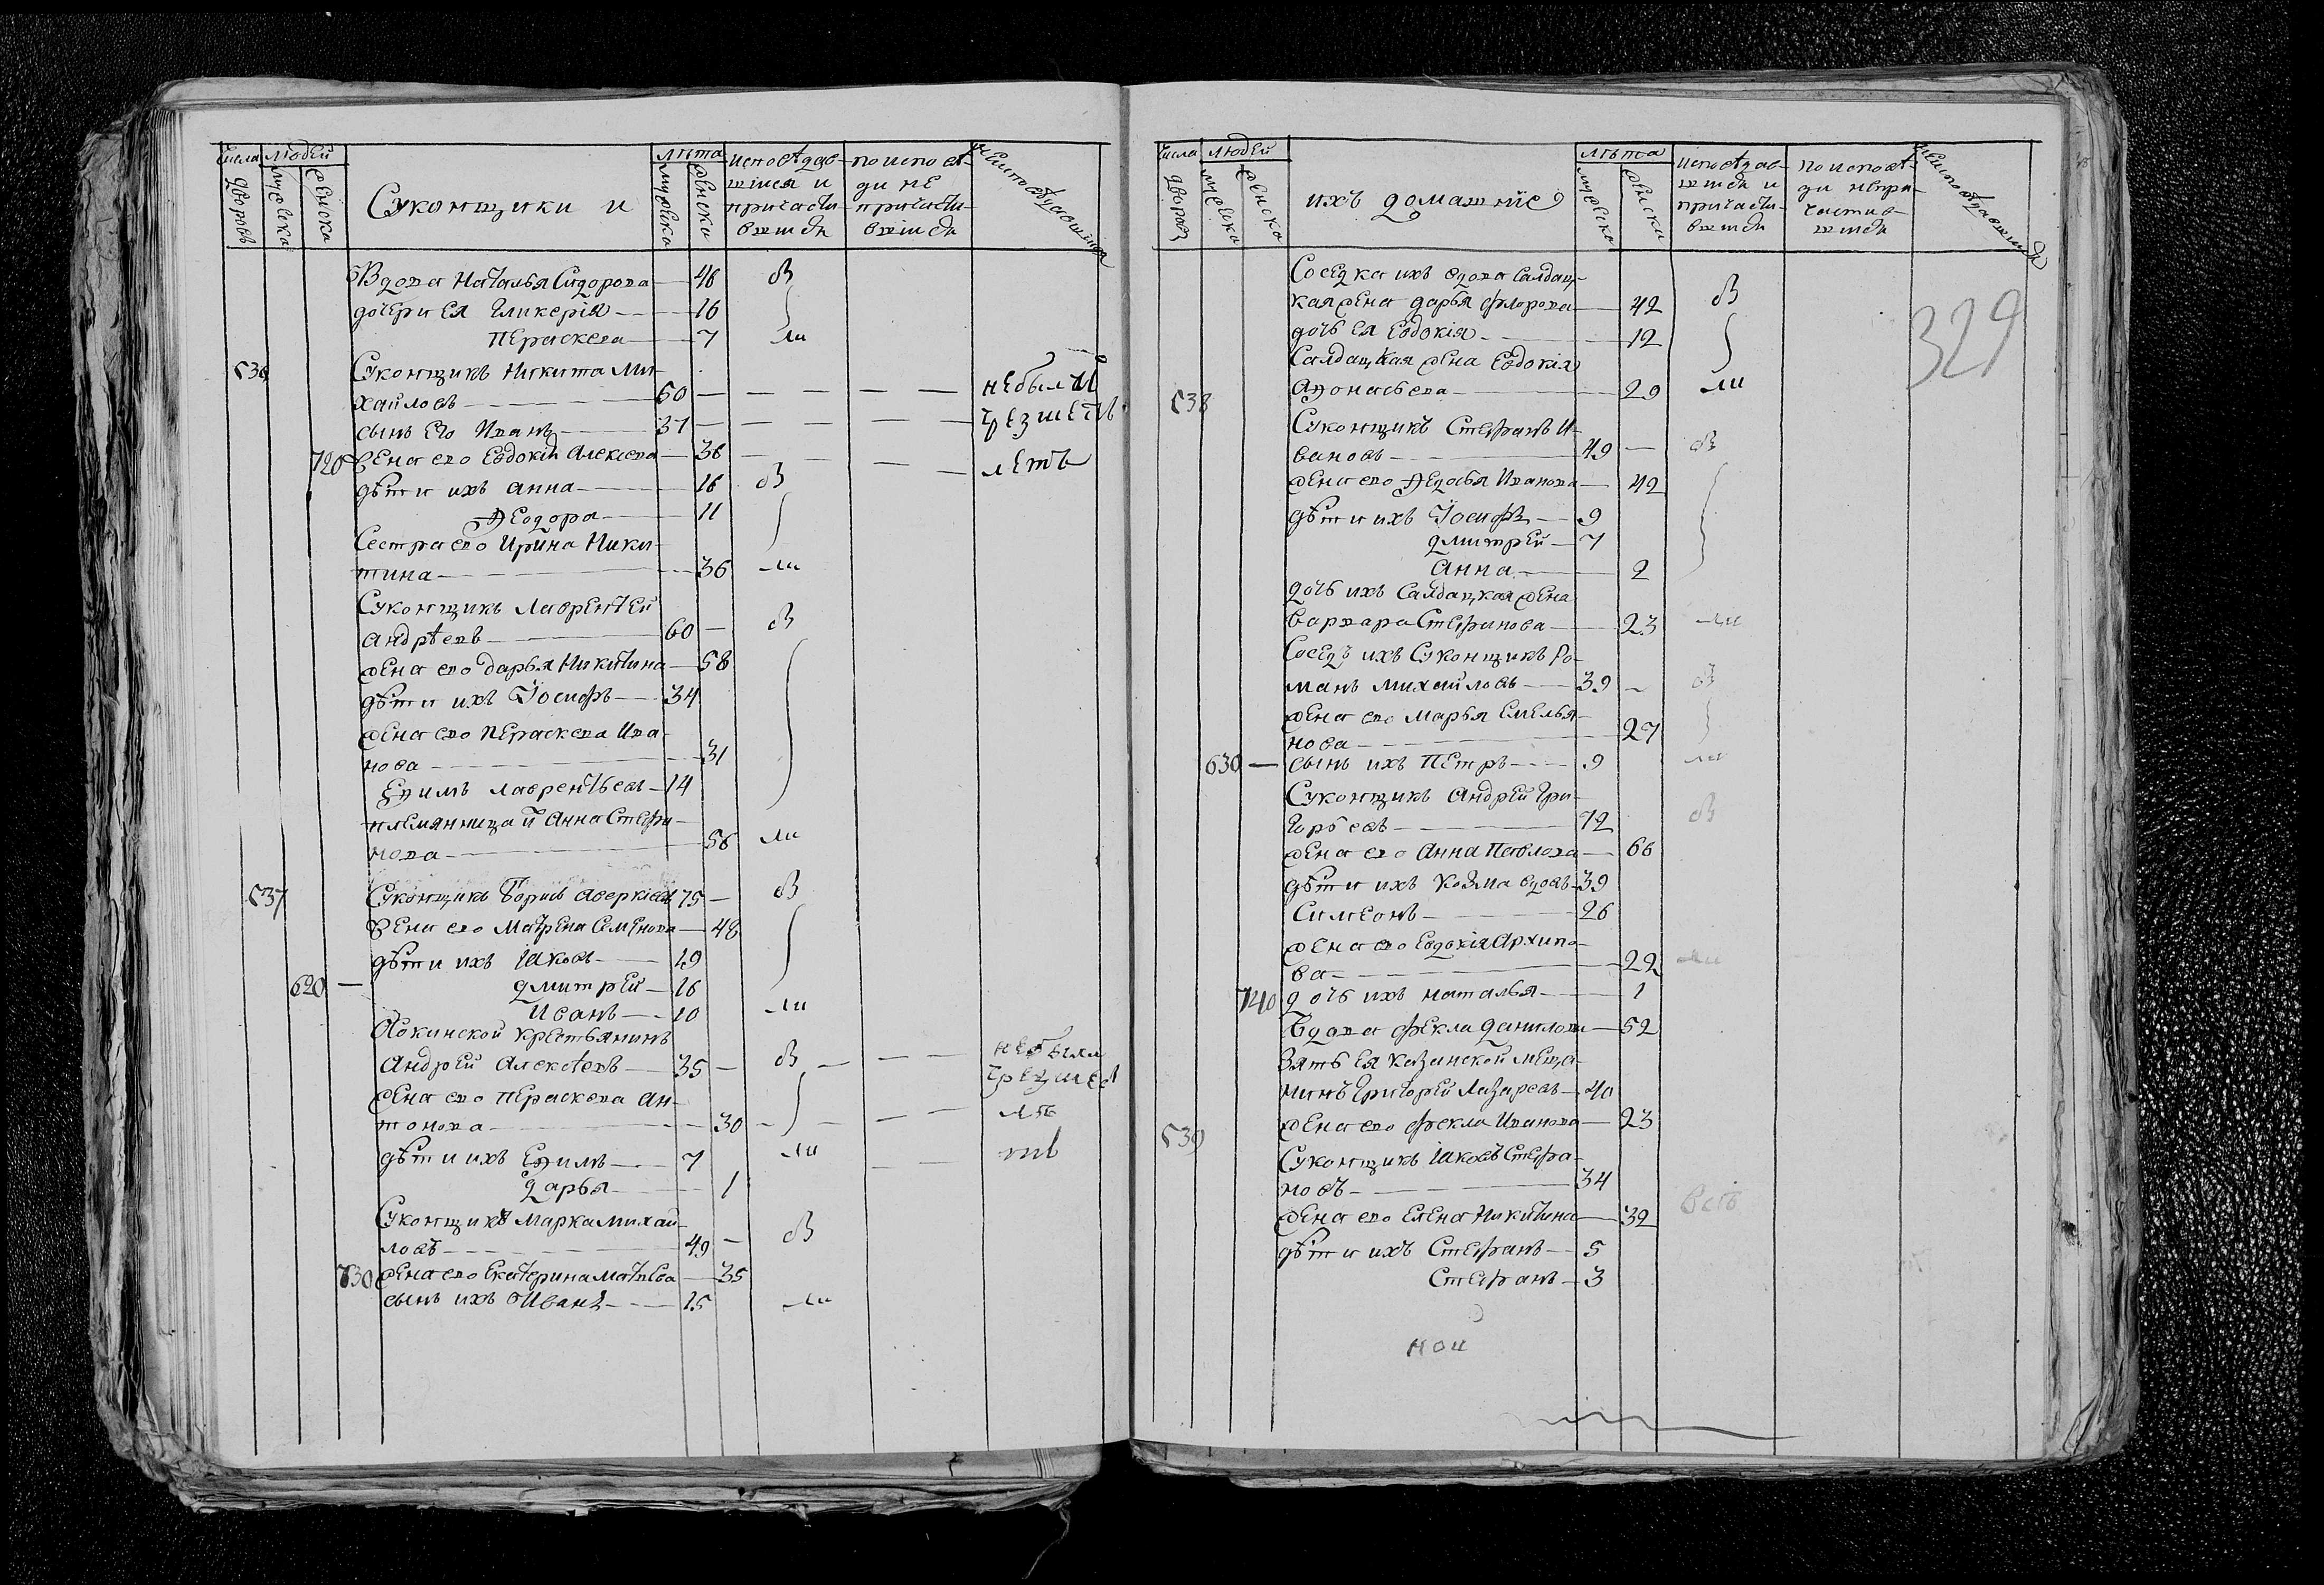 Числа дворовъ
людей
мужеска
женска
Суконщики и
лѣта
мужеска
женска
исповѣдав-
шıися и
причасти-
вшıися
по испове-
ди не
причасти-
вшıися
Вдова Наталья Сидорова — 48 в
дочери ея Гликерія — 16
Пераскева — 7 ли
536 Суконщикъ Никита Ми-
хайловъ — 60 — небыли
сынъ его Иванъ — 37 — чрез шесть
720 жена ево Евдокія Алексѣева — 38 — летъ
дѣти ихъ Анна — 16 в
Ѳеодора — 11
Сестра ево Ирина Ники-
тина — 36 ли
Суконщикъ Лаврентей
Андрѣевъ — 60 — в
жена ево Дарья Никитина — 58
дѣти ихъ Іосифъ — 34
жена ево Пераскева Ива-
нова — 31
Еѳимъ Лаврентьевъ — 14
племянница й Анна Стефа-
нова — 56 ли
537 Суконщикъ Борисъ Аверкіевъ 75 — в
жена ево Матрена Семенова — 48
дѣти ихъ Іаковъ — 19
620 — Дмитрей — 16
Иванъ — 10 ли
крестьянинъ
Андрей Алексѣевъ — 35 — в — небыли
жена ево Пераскева Ан-
тонова — 30 — лѣ
дѣти ихъ Еѳимъ — 7 ли — тъ
Дарья — 1
Суконщикъ Марка Михай-
ловъ — 49 — в
730 жена ево Екатерина Матвѣева — 35
сынъ ихъ Иванъ — 15 ли
Числа дворовъ
людей
мужеска
женска
ихъ домашніе
лѣта
мужеска
женска
исповѣдав-
шıися и
причасти-
вшıися
по исповѣ-
ди непри-
частив-
шıися
329
Соседка ихъ вдова салдац-
кая жена Дарья Флорова — 42 в
дочь ея Евдокія — 12
Салдацкая жена Евдокія
Аѳонасьева — 29 ли
538 Суконщикъ Стефанъ И-
вановъ — 49 — в
жена ево Ѳедосья Иванова — 42
дѣти ихъ Іосифъ — 9
Дмитрей — 7
Анна — 2
дочь ихъ салдацкая жена
Варвара Стефанова — 23 ли
Соседъ ихъ Суконщикъ Ро-
манъ Михайловъ — 39 — в
жена ево Марья Емелья-
нова — 27
630 — сынъ ихъ Петръ — 9 ли
Суконщикъ Андрей Гри-
горьевъ — 72 в
жена ево Анна Павлова — 66
дѣти ихъ Козма вдовъ — 39
Симеонъ — 26
жена ево Евдокія Архипо-
ва — 22 ли
740 дочь ихъ Наталья — 1
Вдова Фекла Данилова — 52
Зять ея Казанской меща-
нинъ Григорей Лазаревъ — 40
жена ево Фекла Иванова — 23
539 Суконщикъ Іаковъ Стефа-
новъ — 34
жена ево Елена Никитина — 32
дѣти ихъ Стефанъ — 5
Стефанъ — 3